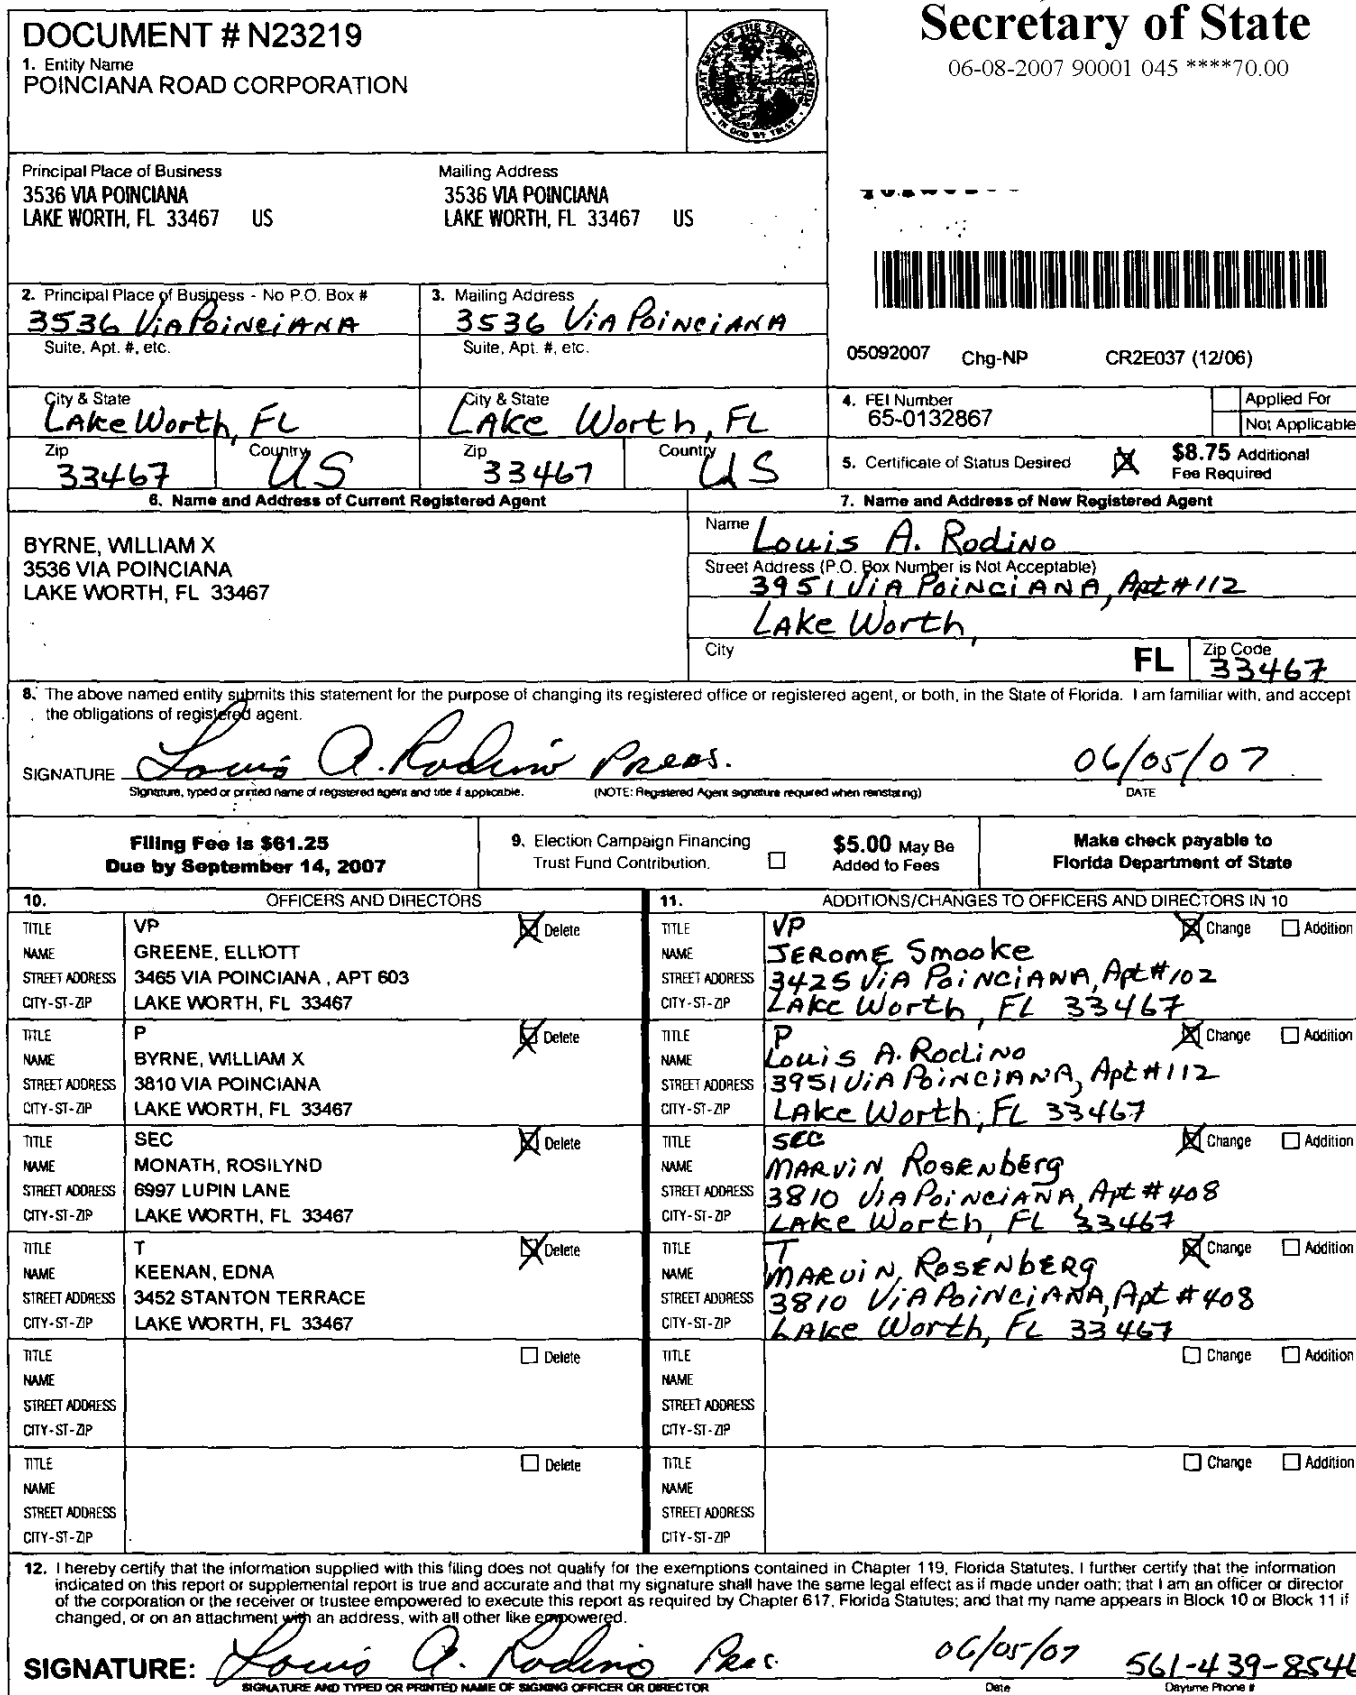 Secretary of State
06-08-2007 90001 045 ****70.00
DOCUMENT # N23219
1. Entity Name
POINCIANA ROAD CORPORATION
GREAT SEAL OF THE STATE OF FLORIDA
IN GOD WE TRUST
Principal Place of Business
3536 VIA POINCIANA
LAKE WORTH, FL 33467 US
Mailing Address
3536 VIA POINCIANA
LAKE WORTH, FL 33467 US
2. Principal Place of Business - No P.O. Box #
3536 Via Poinciana
Suite, Apt. #, etc.
City & State
Lake Worth, FL
Zip
33467
Country
US
3. Mailing Address
3536 Via Poinciana
Suite, Apt. #, etc.
City & State
Lake Worth, FL
Zip
33467
Country
US
05092007 Chg-NP CR2E037 (12/06)
4. FEI Number
65-0132867
Applied For
Not Applicable
5. Certificate of Status Desired
$8.75 Additional
Fee Required
6. Name and Address of Current Registered Agent
BYRNE, WILLIAM X
3536 VIA POINCIANA
LAKE WORTH, FL 33467
7. Name and Address of New Registered Agent
Name Louis A. Rodino
Street Address (P.O. Box Number is Not Acceptable)
3951 Via Poinciana, Apt # 112
Lake Worth,
City FL Zip Code
33467
8. The above named entity submits this statement for the purpose of changing its registered office or registered agent, or both, in the State of Florida. I am familiar with, and accept
the obligations of registered agent.
SIGNATURE Louis A. Rodino Pres. 06/05/07
Signature, typed or printed name of registered agent and title if applicable. (NOTE: Registered Agent signature required when reinstating) DATE
Filing Fee is $61.25
Due by September 14, 2007
9. Election Campaign Financing
Trust Fund Contribution.
$5.00 May Be
Added to Fees
Make check payable to
Florida Department of State
10. OFFICERS AND DIRECTORS
TITLE VP Delete
NAME GREENE, ELLIOTT
STREET ADDRESS 3465 VIA POINCIANA , APT 603
CITY-ST-ZIP LAKE WORTH, FL 33467
TITLE P Delete
NAME BYRNE, WILLIAM X
STREET ADDRESS 3810 VIA POINCIANA
CITY-ST-ZIP LAKE WORTH, FL 33467
TITLE SEC Delete
NAME MONATH, ROSILYND
STREET ADDRESS 6997 LUPIN LANE
CITY-ST-ZIP LAKE WORTH, FL 33467
TITLE T Delete
NAME KEENAN, EDNA
STREET ADDRESS 3452 STANTON TERRACE
CITY-ST-ZIP LAKE WORTH, FL 33467
TITLE Delete
NAME
STREET ADDRESS
CITY-ST-ZIP
TITLE Delete
NAME
STREET ADDRESS
CITY-ST-ZIP
11. ADDITIONS/CHANGES TO OFFICERS AND DIRECTORS IN 10
TITLE VP Change Addition
NAME Jerome Smooke
STREET ADDRESS 3425 Via Poinciana, Apt # 102
CITY-ST-ZIP Lake Worth, FL 33467
TITLE P Change Addition
NAME Louis A. Rodino
STREET ADDRESS 3951 Via Poinciana, Apt # 112
CITY-ST-ZIP Lake Worth, FL 33467
TITLE SEC Change Addition
NAME Marvin Rosenberg
STREET ADDRESS 3810 Via Poinciana, Apt # 408
CITY-ST-ZIP Lake Worth, FL 33467
TITLE T Change Addition
NAME Marvin Rosenberg
STREET ADDRESS 3810 Via Poinciana, Apt # 408
CITY-ST-ZIP Lake Worth, FL 33467
TITLE Change Addition
NAME
STREET ADDRESS
CITY-ST-ZIP
TITLE Change Addition
NAME
STREET ADDRESS
CITY-ST-ZIP
12. I hereby certify that the information supplied with this filing does not qualify for the exemptions contained in Chapter 119, Florida Statutes. I further certify that the information
indicated on this report or supplemental report is true and accurate and that my signature shall have the same legal effect as if made under oath; that I am an officer or director
of the corporation or the receiver or trustee empowered to execute this report as required by Chapter 617, Florida Statutes; and that my name appears in Block 10 or Block 11 if
changed, or on an attachment with an address, with all other like empowered.
SIGNATURE: Louis A. Rodino Pres. 06/05/07 561-439-8546
SIGNATURE AND TYPED OR PRINTED NAME OF SIGNING OFFICER OR DIRECTOR Date Daytime Phone #